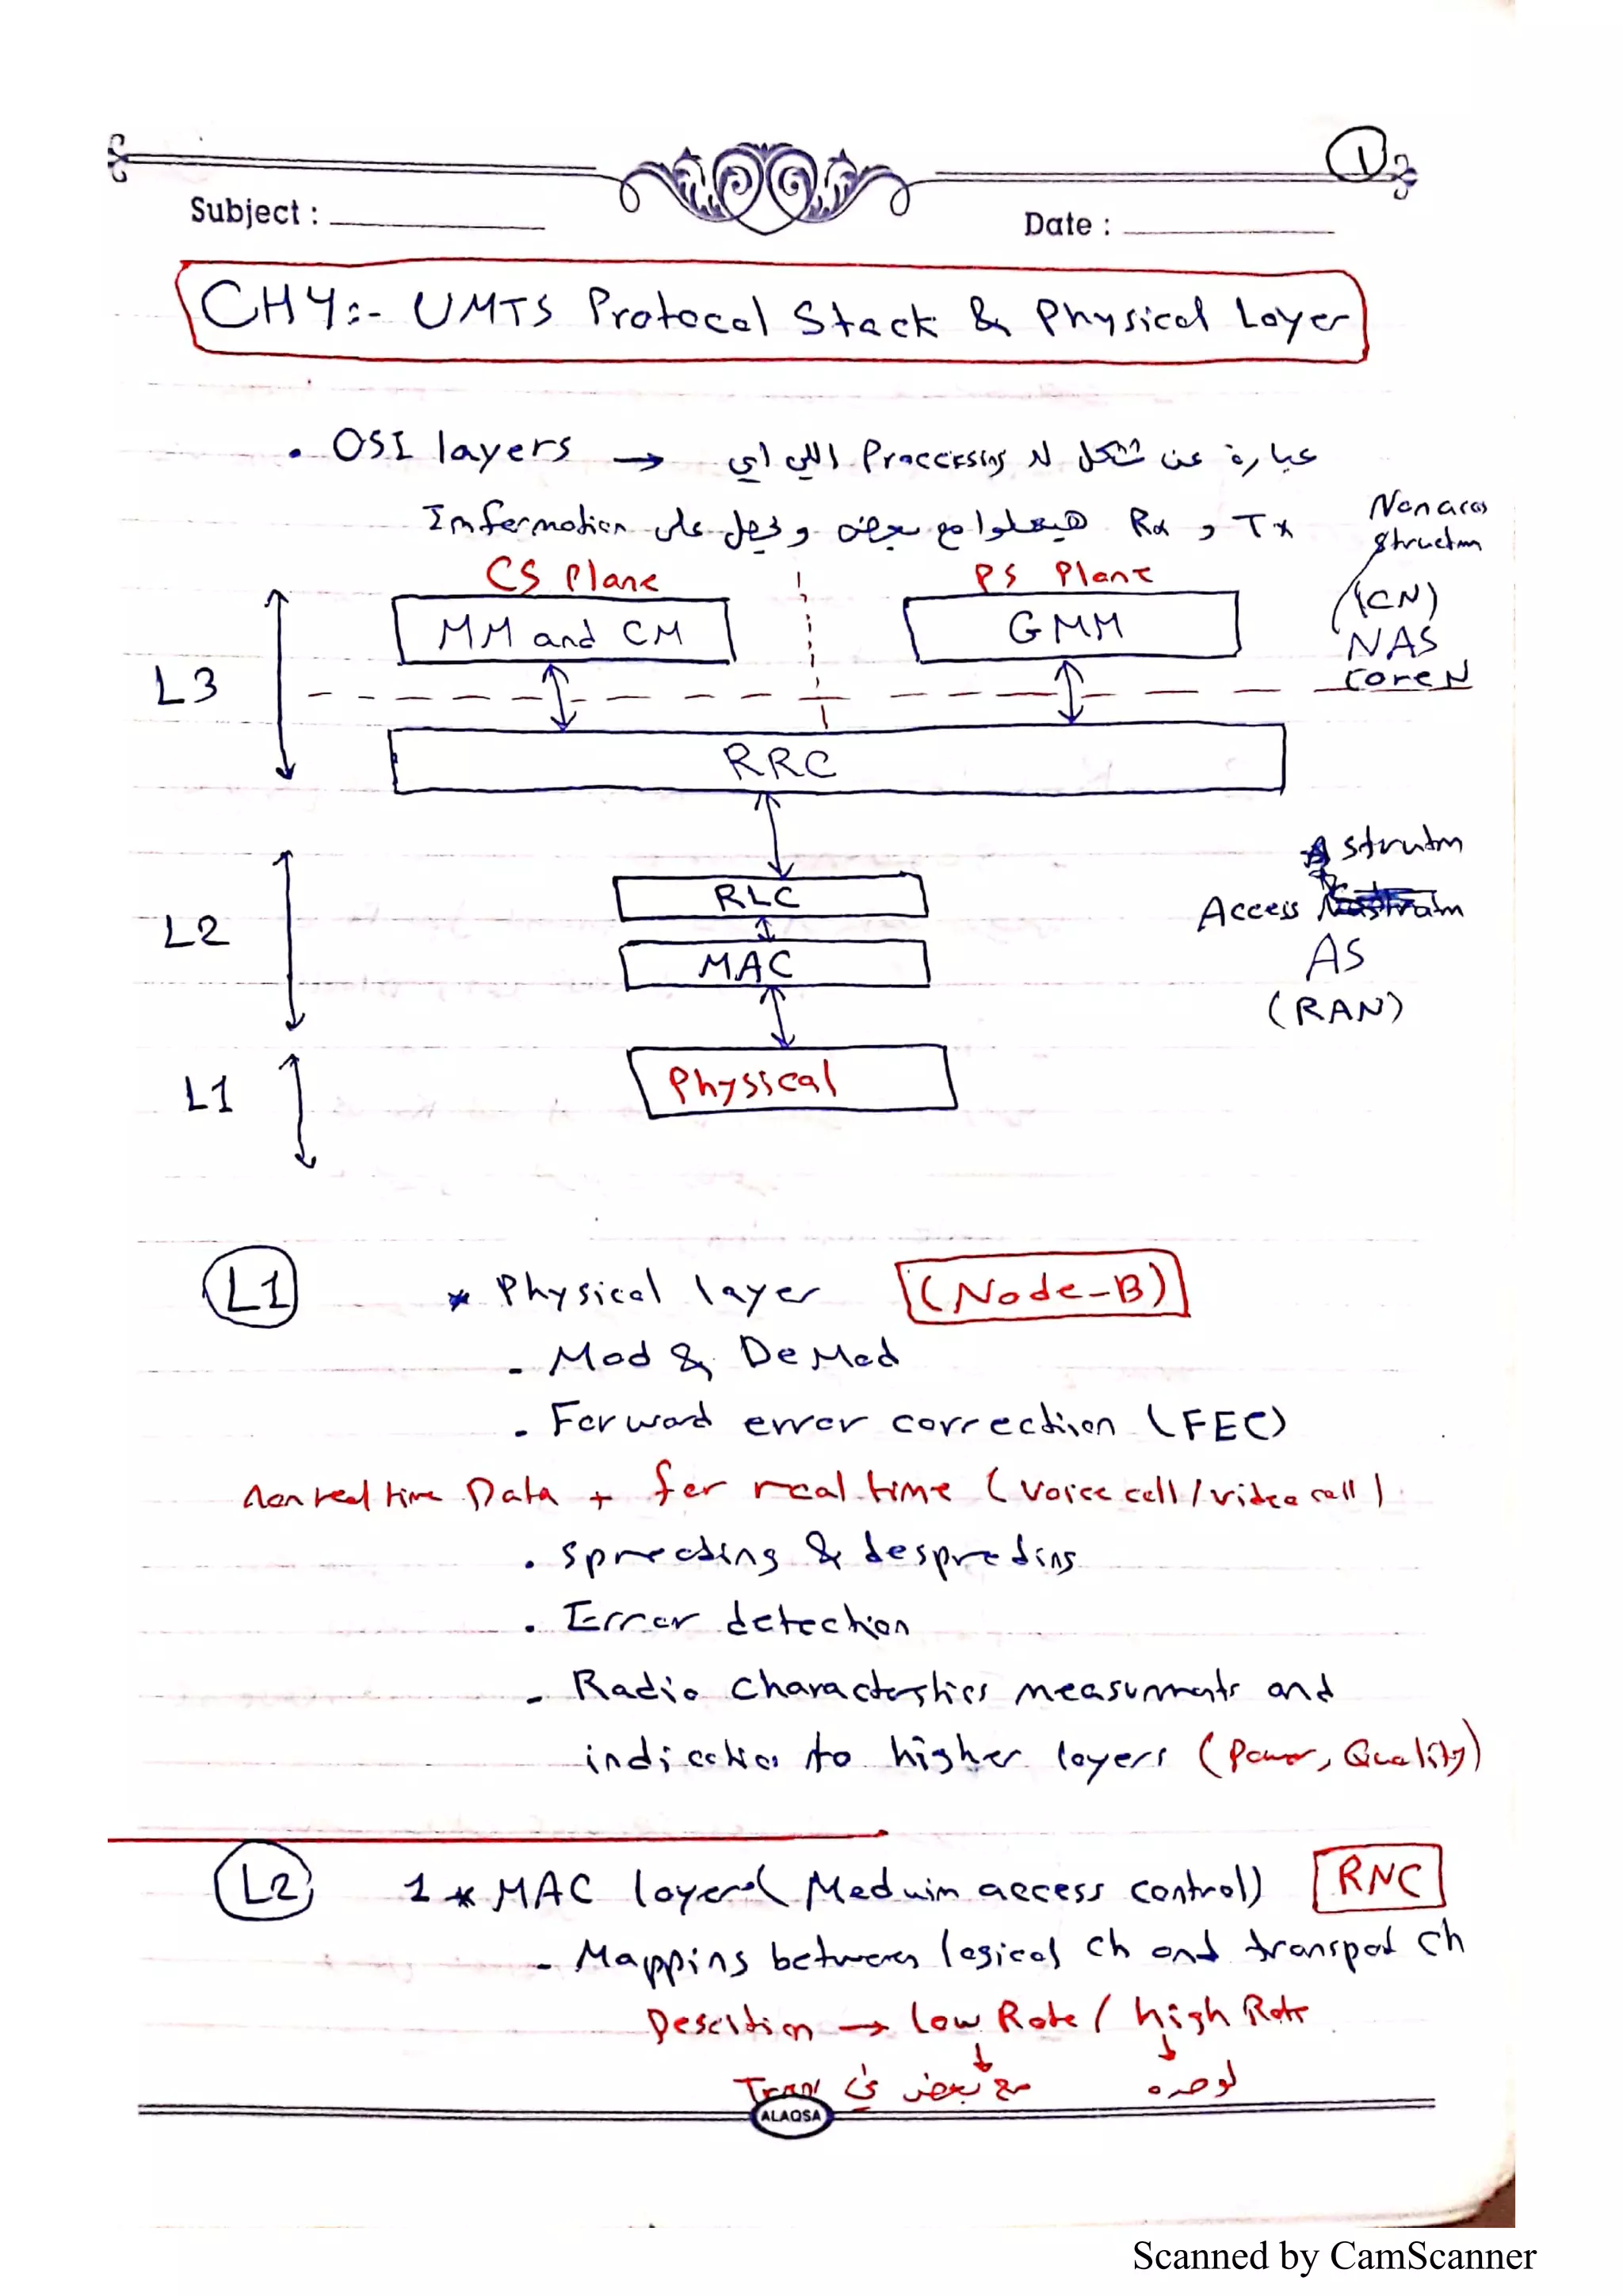 1
Subject :
Date :
CH4:- UMTS Protocol Stack & Physical Layer
• OSI layers → عبارة عن شكل لل Processing اللي اي
Tx و Rx هيعملوا مع بعض و على Information
Non
CS Plane
PS Plane
MM and CM
GMM
(CN)
NAS
Core N
L3
RRC
stratm
RLC
Access
L2
MAC
AS
(RAN)
L1
Physical
L1 * Physical layer (Node-B)
- Mod & DeMod
• Forward error correction (FEC)
non real time Data + for real time (voice call / video call)
• spreading & despreding
• Error detection
- Radio charactestics measurments and
indication to higher layers (Power, Quality)
L2 1 * MAC layer (Meduim access control) RNC
- Mapping between logical ch and transpot ch
→ low Rate / high Rate
مع بعض في Tran لوحده
ALAQSA
Scanned by CamScanner